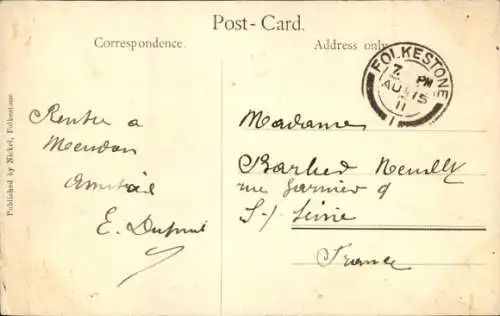 Post-Card.
Correspondence.
Address only
FOLKESTONE
7 PM
AU 15
11
1
Published by Nickel, Folkestone.
Rentre a
Meudon
Amitié
E. Dupont
Madame
Barbed Neuilly
rue Garnier 9
S-/ Seine
France